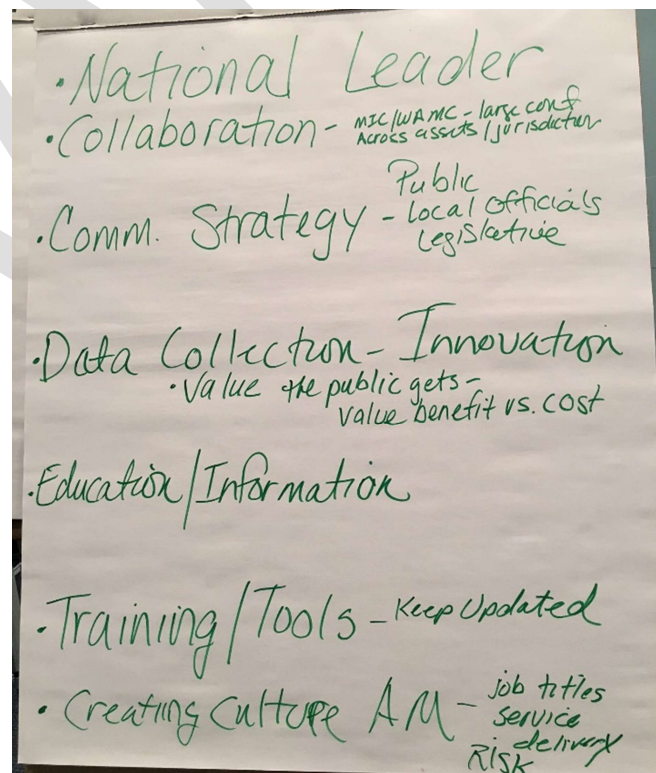 ·National Leader
·Collaboration - MIC/WAMC - large conf
Across assets/jurisdiction
Public
·Comm. Strategy - local officials
Legislative
·Data Collection - Innovation
·Value the public gets -
value benefit vs. cost
·Education/Information
·Training/Tools - Keep Updated
·Creating Culture AM - job titles
service
delivery
Risk